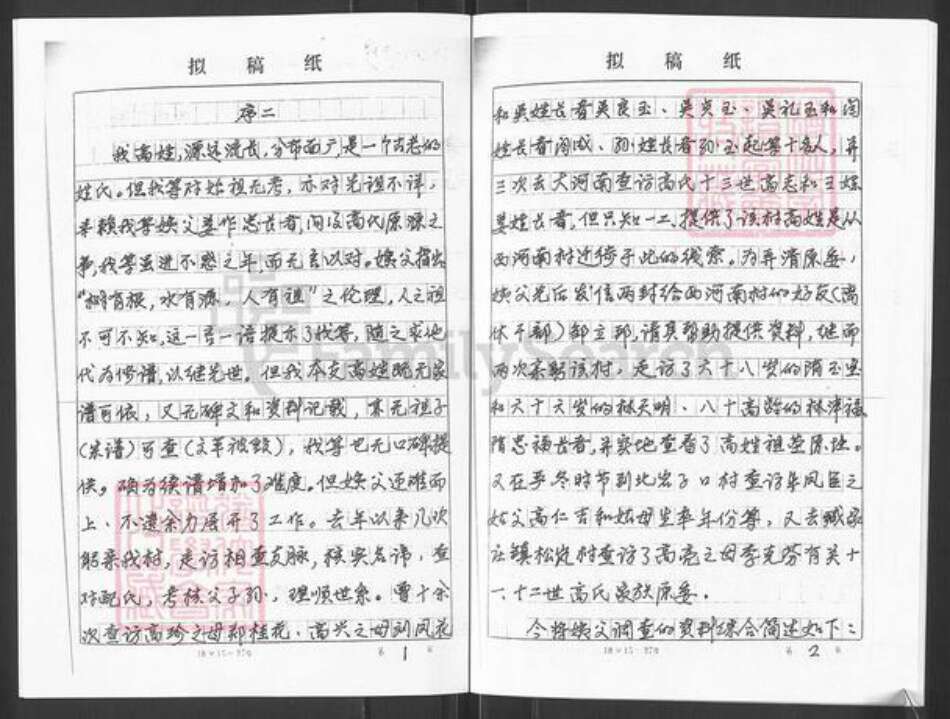 拟稿纸
序二
我高姓,源远流长,分布面广,是一个古老的
姓氏。但我等对始祖无考,亦对先祖不详,
承赖我等姨父姜作忠长者,问及高氏原源之
事,我等虽进不惑之年,而无言以对。姨父指出
“树有根,水有源,人有祖”之伦理,人之祖
不可不知,这一言一语提示了我等,随之求他
代为修谱,以继先世。但我本支高姓既无家
谱可依,又无碑文和资料记载,亦无祖子
(宗谱)可查(文革被毁),我等也无口碑提
供。确为续谱增加了难度。但姨父还难而
上,不遗余力展开了工作。去年以来几次
躬亲我村,走访相查支脉,核实名讳,查
对配氏,考核父子孙,理顺世系。曾十余
次查访高珍之母郑桂花、高兴之母刘凤花
18×15=270
第1页
拟稿纸
和吴姓长者吴良玉、吴奕玉、吴礼玉和阎
姓长者阎成、孙姓长者孙玉起等十名人,并
三次去大河南查访高氏十三世高志和王姓
姜姓长者,但只知一二,提供了该村高姓是从
西河南村迁徙于此的线索。为弄清原委,
姨父先后发信两封给西河南村的好友(离
休干部)邹立邦,请其帮助提供资料,继而
两次亲躬该村,走访了六十八岁的隋玉里
和六十六岁的林天明、八十高龄的林津福
隋忠福长者,并实地查看了高姓祖茔原址。
又在乎冬时节到北岩子口村查访牟凤臣之
姑父高仁吉和姑母生卒年份等,又去臧家
庄镇松岚村查访了高亮之母李克芬有关十
一、十二世高氏家族原委。
今将姨父调查的资料综合简述如下:
18×15=270
第2页
FamilySearch